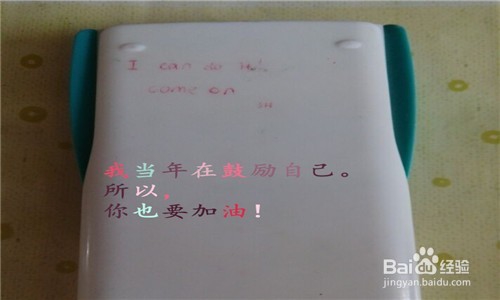 I can do
come on
我当年在鼓励自己。
所以，
你也要加油！
Bai du 经验
jingyan.baidu.com